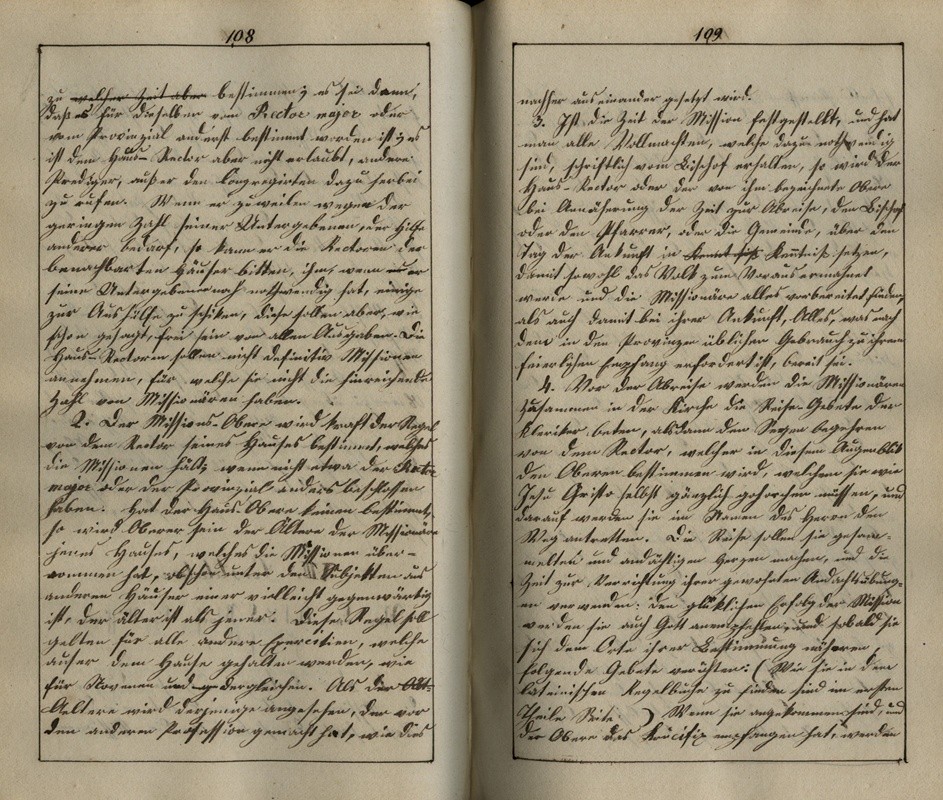 108
zu welcher Zeit aber bestimmen; es sei dann,
daß es für dieselben vom Rector major oder
vom Provinzial anderst bestimmt worden ist; es
ist dem Haus-Rector aber nicht erlaubt, andere
Prediger, außer den Congregirten dazu herbei
zu rufen. Wenn er zuweilen wegen der
geringen Zahl seiner Untergebenen, der Hilfe
anderer bedarf, so kann er die Rectoren der
benachbarten Häuser bitten, ihm, wenn er
seine Untergebenen noch nothwendig hat, einige
zur Aushülfe zu schiken, diese sollen aber, wie
schon gesagt, frei sein von allen Ausgaben. Die
Haus-Rectoren sollen nicht definitiv Missionen
annehmen, für welche sie nicht die hinreichende
Zahl von Missionären haben.
2. Der Missions-Obere wird kraft der Regel
von dem Rector seines Hauses bestimmt, welches
die Missionen hält; wenn nicht etwa der Rector
major oder der Provinzial anders beschlossen
haben. Hat der Haus-Obere keinen bestimmt,
so wird Oberer sein der Ältere der Missionäre
jenes Hauses, welches die Missionen über-
nommen hat, obschon unter den Subjekten aus
anderen Häuser einer vielleicht gegenwärtig
ist, der älter ist als jener. Diese Regel soll
gelten für alle andere Exercitien, welche
außer dem Hause gehalten werden, wie
für Novenen und dergleichen. Als der
Aeltere wird derjenige angesehen, der vor
den anderen Profession gemacht hat, wie dies
109
nachher auseinander gesetzt wird.
3. Ist die Zeit der Mission festgestellt, und hat
man alle Vollmachten, welche dazu nothwendig
sind, schriftlich vom Bischof erhalten, so wird der
Haus-Rector oder der von ihm bezeichnete Obere
bei Annäherung der Zeit zur Abreise, den Bischof
oder den Pfarrer, oder die Gemeinde, über den
Tag der Ankunft in Kenntniß setzen,
damit sowohl das Volk zum Voraus ermahnet
werde und die Missionäre alles vorbereitet finden,
als auch damit bei ihrer Ankunft, Alles, was nach
dem in den Provinzen üblichen Gebrauch zu ihrem
feierlichen Empfang erfordert ist, bereit sei.
4. Vor der Abreise werden die Missionären
zusammen in der Kirche die Reise-Gebete der
Kleriker beten, alsdann den Segen begehren
von dem Rector, welcher in diesem Augenblik
den Oberen bestimmen wird, welchem sie wie
Jesu Christo selbst gänzlich gehorchen müssen, und
darauf werden sie im Namen des Herrn den
Weg antretten. Die Reise sollen sie gesam-
melten und andächtigen Herzen machen, und die
Zeit zur Verrichtung ihrer gewohnten Andachtsübung-
en verwenden: den glüklichen Erfolg der Mission
werden sie auch Gott anempfehlen, und sobald sie
sich dem Orte ihrer Bestimmung nähern,
folgende Gebete verrichten: (Wie sie in dem
lateinischen Regelbuche zu finden sind im ersten
Theile Seite ) Wenn sie angekommen sind, und
der Obere das Krucifix empfangen hat, werden